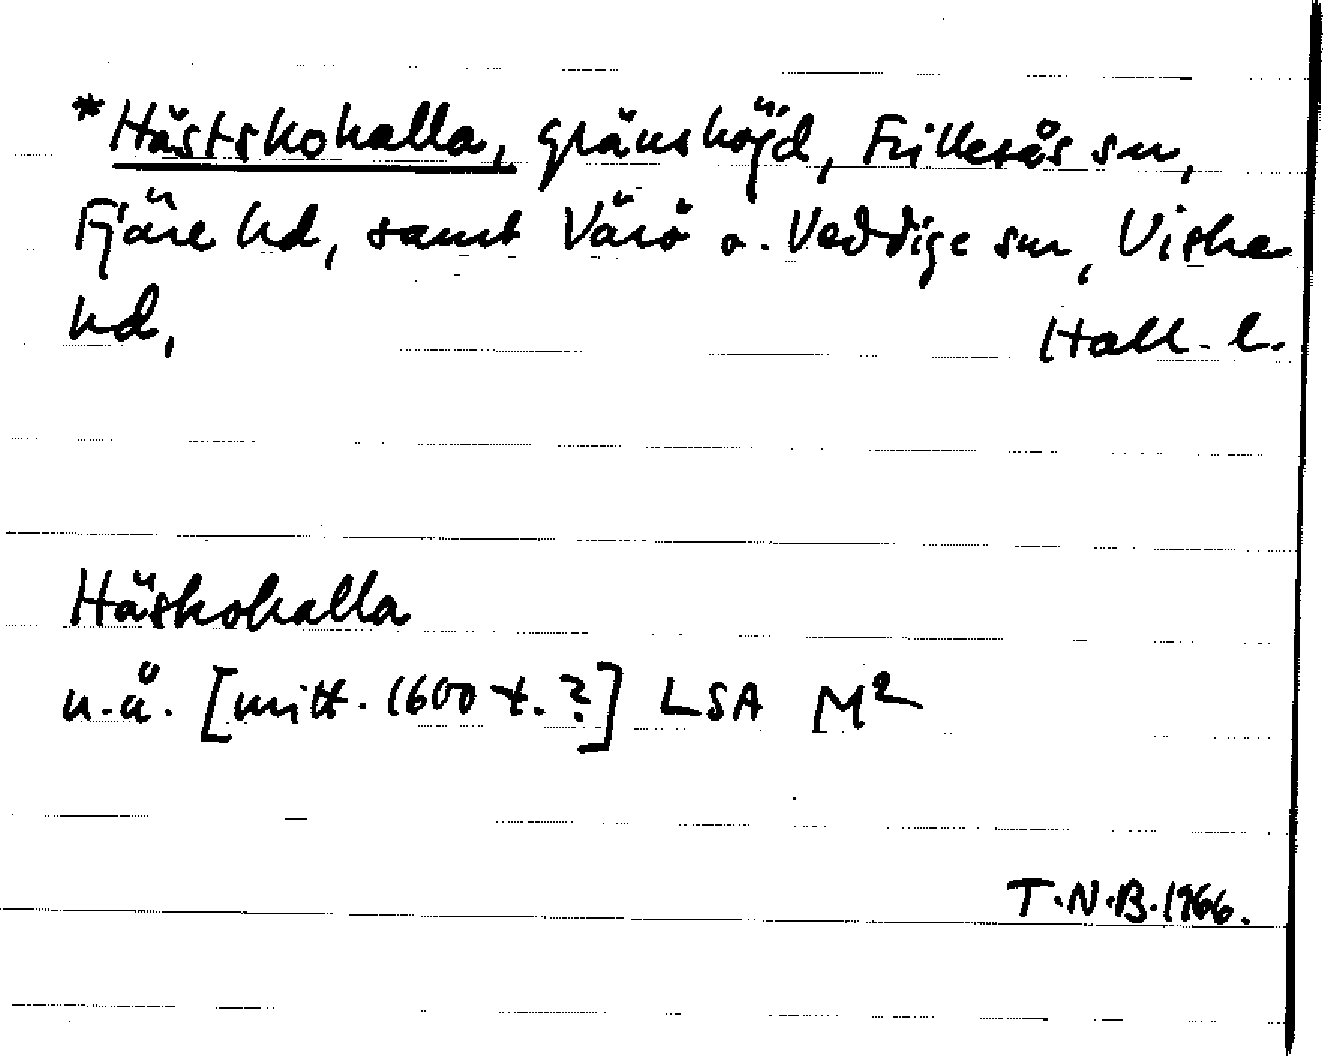 *Hästskohalla, gränshöjd, Frillesås sn,
Fjäre hd, samt Värö o. Veddige snr, Viske
hd, Hall. l.
Häskohalla
u.å. [mitt. 1600 t. ?] LSA M²
T.N.B. 1966.